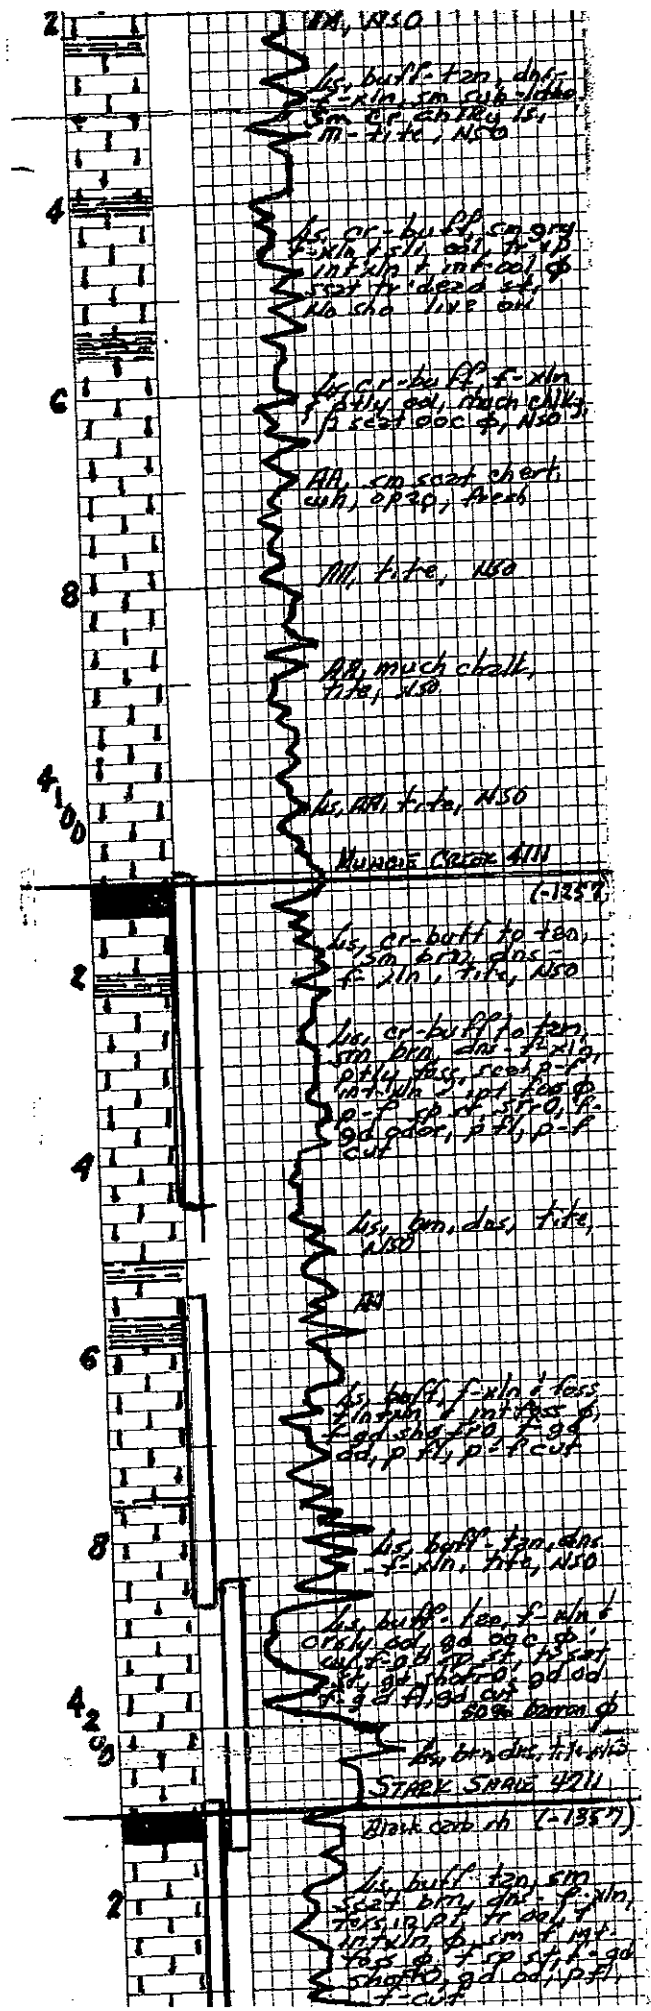 2
AA, NSO
Ls, buff-tan, dns-
f-xln, sm sub-litho
sm cr chlky ls,
m-tite, NSO
4
Ls, cr-buff, sm gry
f-xln, sli ool, tr vp
intxln + int-ool φ
scat tr dead st,
No sho live oil
6
Ls, cr-buff f-xln
ptly ool, much chlky,
p scat ooc φ, NSO
AA, sm scat chert,
wh, opaq, fresh
8
AA, tite, NSO
AA, much chalk,
tite, NSO
4100
Ls, AA, tite, NSO
MUNCIE CREEK 4111
(-1257)
Ls, cr-buff to tan,
sm brn, dns-
f-xln, tite, NSO
2
Ls, cr-buff to tan,
sm brn, dns-f-xln,
ptly foss, scat p-f
intxln + pt foss φ
p-f sp st, SFO, f-
gd odor, p fl, p-f
cut
4
Ls, brn, dns, tite,
NSO
AA
6
Ls, buff, f-xln & foss
f intxln & intfoss φ,
f-gd sho fro, f-gd
od, p fl, p-f cut
8
Ls, buff-tan, dns
-f-xln, tite, NSO
Ls, buff-tan, f-xln &
ool, gd ooc φ,
w/f-gd sp st, tr sat
st, gd sho fro, gd od
f-gd fl, gd cut
50% barren φ
4200
Ls, brn, dns, tite NSO
STARK SHALE 4211
Black carb sh (-1357)
2
Ls, buff tan, sm
scat brn, dns-f-xln,
foss in pt, tr ool, f
intxln φ, sm f int-
foss φ, f sp st, f-gd
sho fro, gd od, p fl,
f-cut